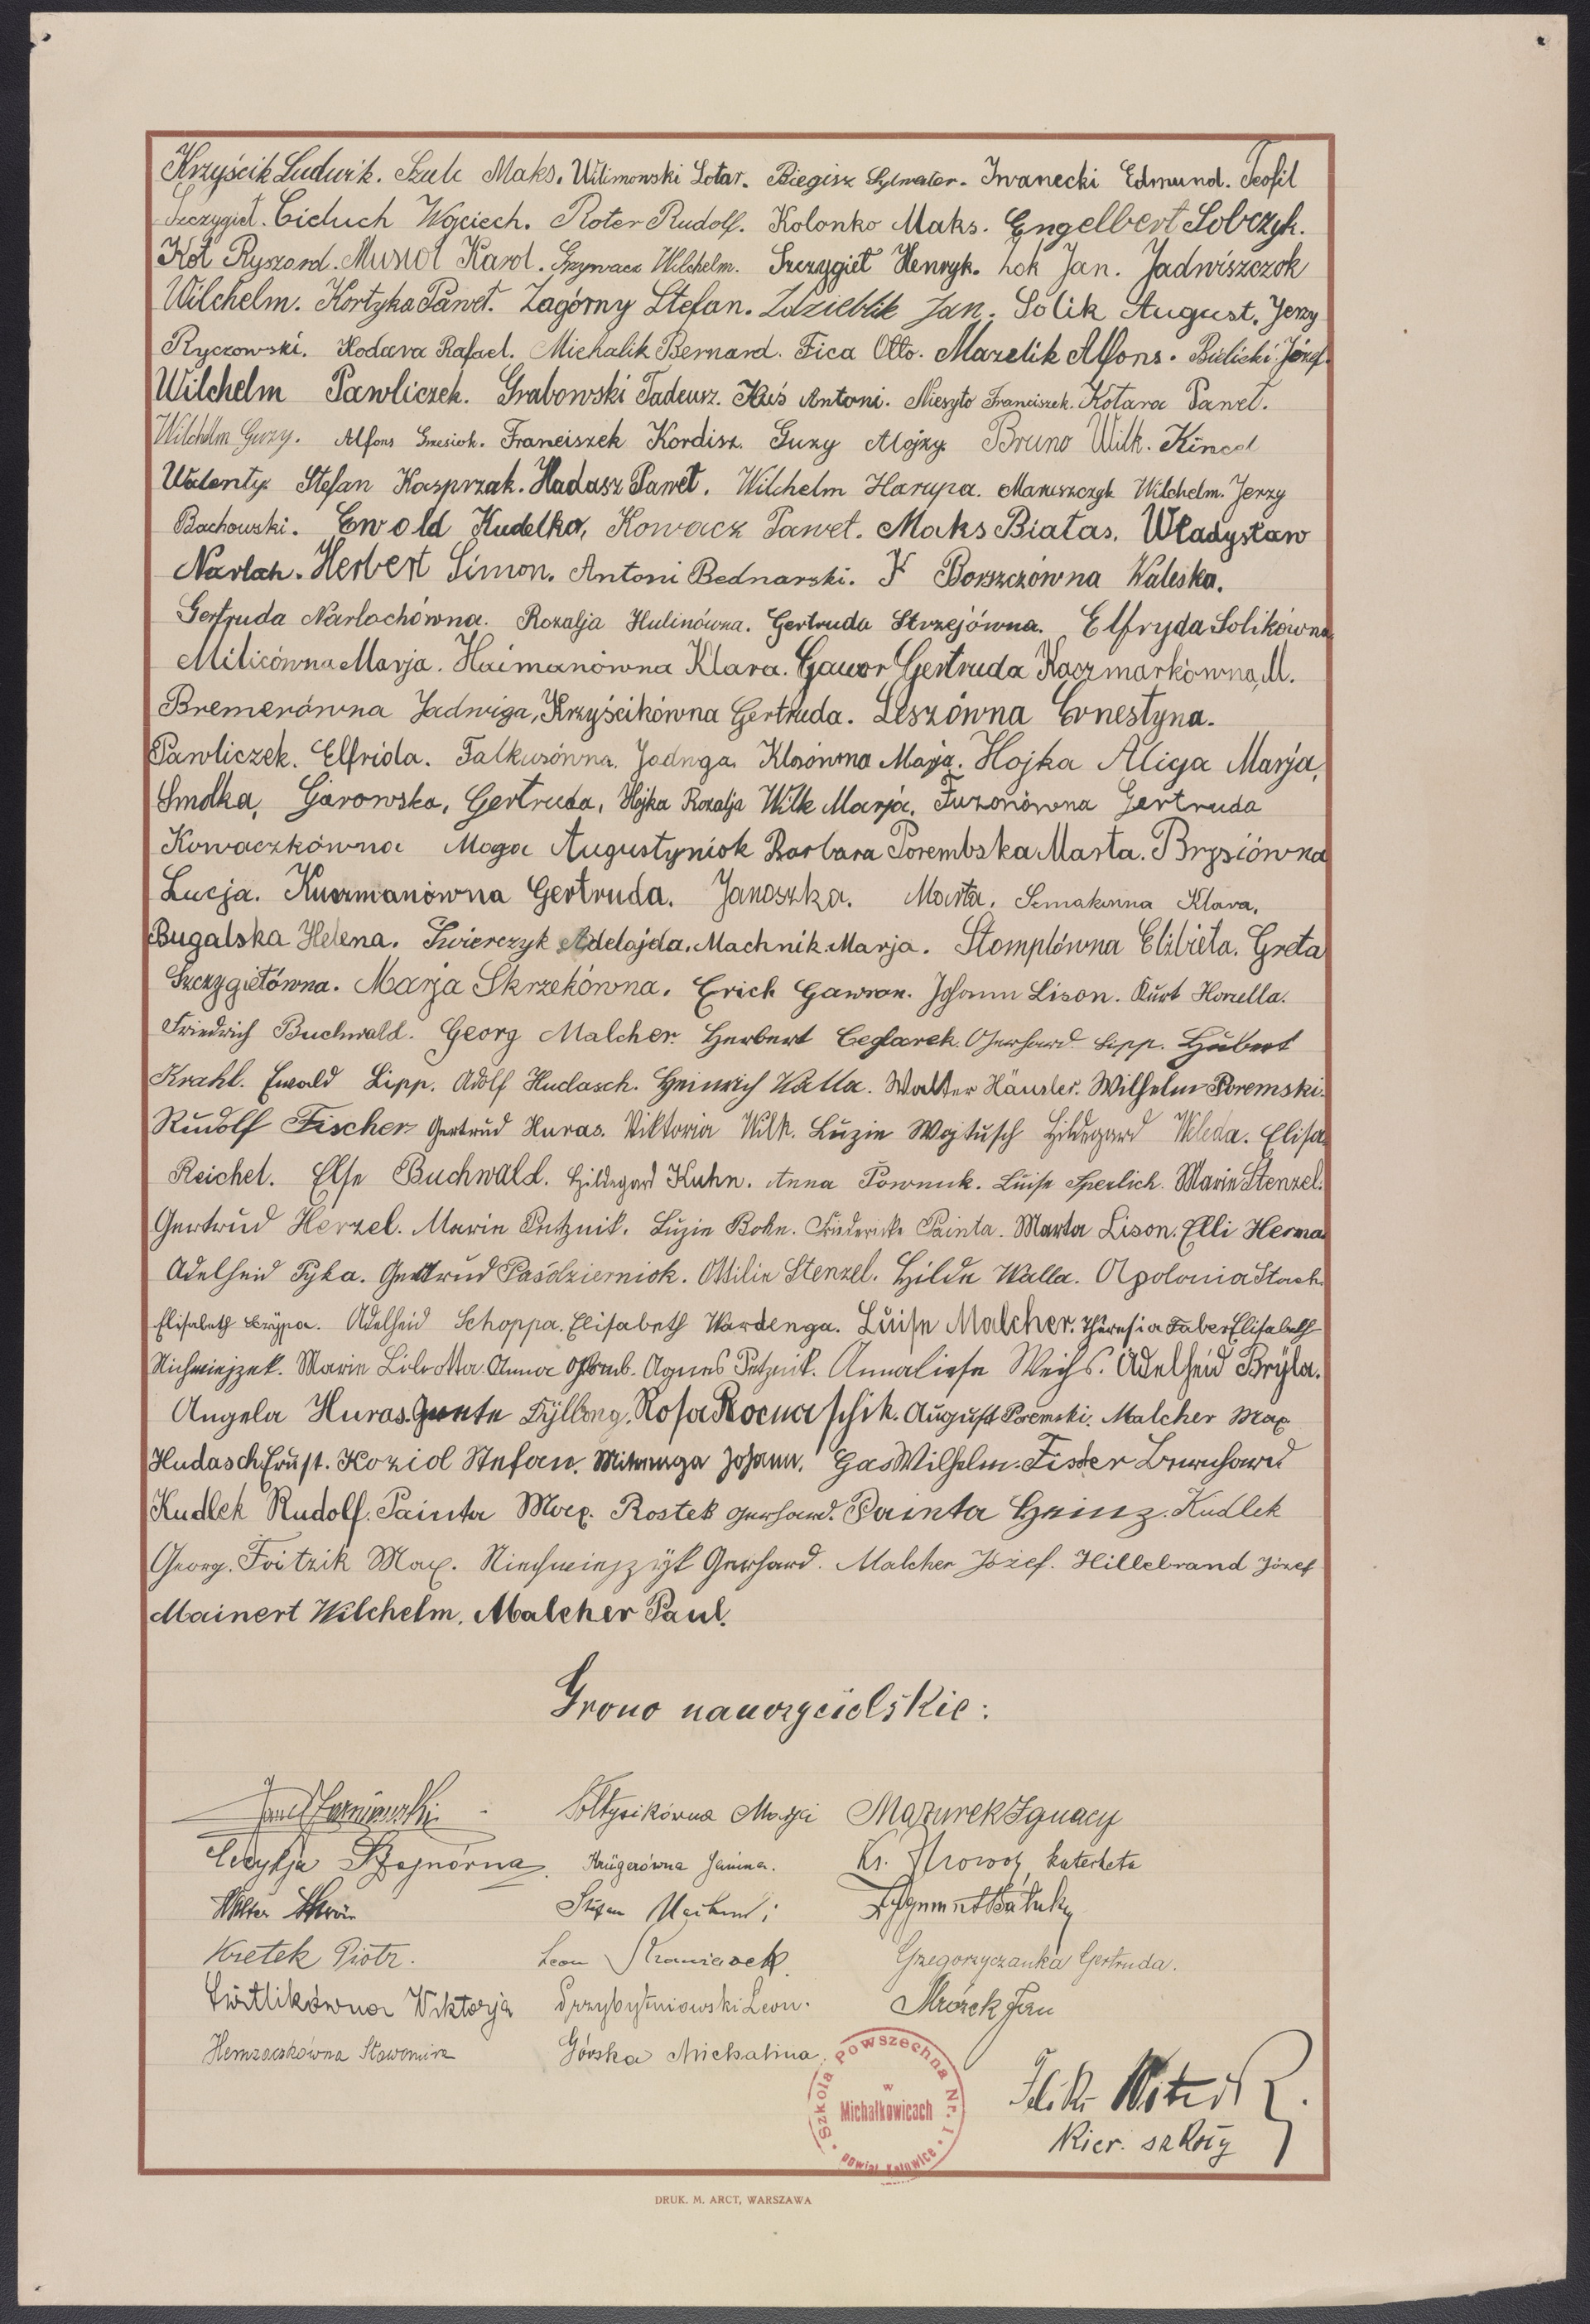 Krzyścik Ludwik. Szulc Maks. Wilimowski Lotar. Biegisz Sylwester. Iwanecki Edmund. Teofil
Szczygieł. Cieluch Wojciech. Roter Rudolf. Kolonko Maks. Engelbert Sobczyk.
Kot Ryszard. Musioł Karol. Grzywacz Wilchelm. Szczygieł Henryk. Żok Jan. Jadwiszczok
Wilchelm. Kortyka Paweł. Zagórny Stefan. Zdzieblik Jan. Solik August. Jerzy
Ryczowski. Kodara Rafael. Michalik Bernard. Fica Otto. Mazelik Alfons. Bielicki Józef.
Wilchelm Pawliczek. Grabowski Tadeusz. Kuś Antoni. Niesyto Franciszek. Kotara Paweł.
Wilchelm Guzy. Alfons Grzesiok. Franciszek Kordisz. Guzy Alojzy. Bruno Wilk. Kincel
Walenty. Stefan Kasprzak. Hadasz Paweł. Wilchelm Harupa. Maruszczyk Wilchelm. Jerzy
Bachowski. Ewold Kudelko, Kowacz Paweł. Maks Białas. Władysław
Narloch. Herbert Simon. Antoni Bednarski. Borszczówna Waleska.
Gertruda Narlochówna. Rozalja Hulinówna. Gertruda Strzejówna. Elfryda Solikówna
Milicówna Marja. Haimanówna Klara. Gawor Gertruda Kaczmarkówna M.
Bremerówna Jadwiga, Krzyścikówna Gertruda. Leszówna Ernestyna.
Pawliczek. Elfrida. Falkusówna. Jadwga. Klosówna Marja. Hojka Alicja Marja,
Smolka, Garowska, Gertruda, Hojka Rozalja Wilk Marja. Fuzonówna Gertruda
Kowaczkówna Maga Augustyniok Barbara Porembska Marta. Brysiówna
Lucja. Kuczmanówna Gertruda. Janoszka. Marta. Klara,
Bugalska Helena. Świerczyk Adelajda. Machnik Marja. Stomplówna Elżbieta. Greta
Szczygiełówna. Marja Skrzekówna. Erich Gawron. Johann Lison. Kurt Horzella.
Friedrich Buchwald. Georg Malcher. Herbert Ceglarek. Gerhard Lipp. Hubert
Krahl. Ewald Lipp. Adolf Hudasch. Heinrich Walla. Walter Häusler. Wilhelm Poremski.
Rudolf Fischer Gertrud Huras. Viktoria Wilk. Luzie Wojtusch Hildegard Weleda. Elisa
Reichel. Else Buchwald. Hildegard Kuhn. Anna Luise Sperlich. Marie Stenzel.
Gertrud Herzel. Marie Petznik. Luzie Bohn. Friedericke Painta. Marta Lison. Elli Herma
Adelheid Tyka. Gertrud Paśdzierniok. Ottilie Stenzel. Hilde Walla. Apolonia Stach
Elisabeth Adelheid Schoppa. Elisabeth Wardenga. Luise Malcher. Theresia Faber Elisabeth
Marie Anna Agnes Petznik. Annaliese Weihs. Adelheid Bryla.
Angela Huras. August Poremski. Malcher Max
Hudasch Ernst. Koziol Stefan. Johann. Gas Wilhelm. Fisser Bernhard
Kudlek Rudolf. Painta Max. Rostek Gerhard. Painta Heinz. Kudlek
Georg. Foitzik Max. Gerhard. Malcher Józef. Hillebrand Józef
Mainert Wilchelm. Malcher Paul.
Grono nauczycielskie:
Sołtysikówna Marja Mazurek Ignacy
Cecylja Krügerówna Janina. Ks. katecheta
Walter Stefan
Kretek Piotr. Leon Grzegorzyczanka Gertruda.
Świtlikówna Wiktorja Przybytniowski Leon. Mrózek Jan
Hemzaczkówna Sławomira Górska Michalina.
Szkoła Powszechna Nr. 1
w
Michałkowicach
powiat Katowice
Kier. szkoły
DRUK. M. ARCT, WARSZAWA